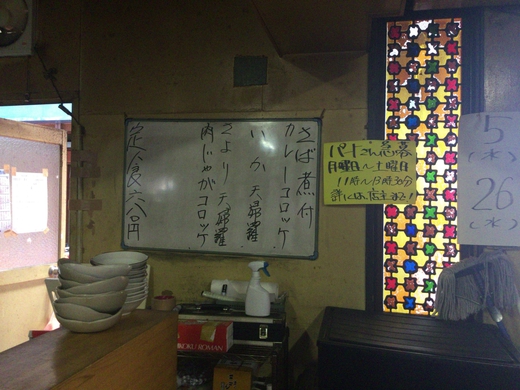 さば煮付
カレーコロッケ
いか天婦羅
さより天婦羅
肉じゃがコロッケ
定食六八〇円
パートさん急募
月曜日～土曜日
11時～13時30分
詳しくは店主まで!!
5
26
(水)
KOKU ROMAN